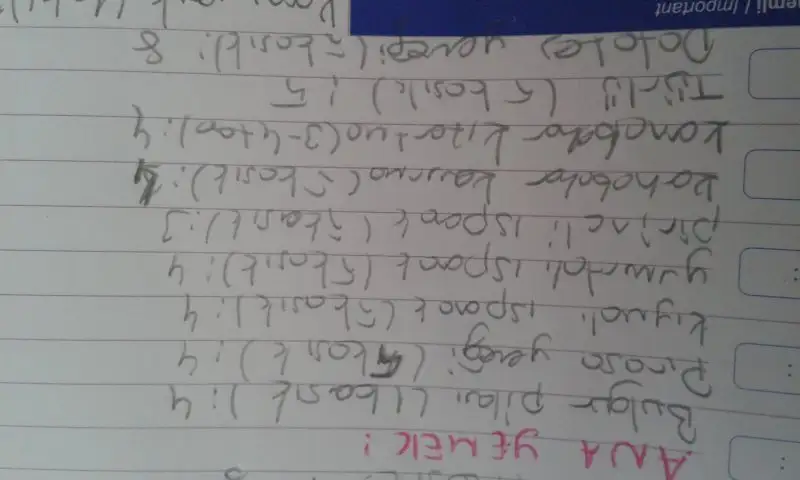 ANA YEMEK:
Bulgur pilavı (1 kaşık): 4
Pırasa yemeği (5 kaşık): 4
kıymalı ıspanak (5 kaşık): 4
yumurtalı ıspanak (5 kaşık): 4
pirinçli ıspanak (5 kaşık): 3
karnabahar kavurma (5 kaşık): 4
karnabahar kızartma (3-4 tane): 4
Türlü (5 kaşık): 5
Patates yemeği (5 kaşık): 8
emli / Important